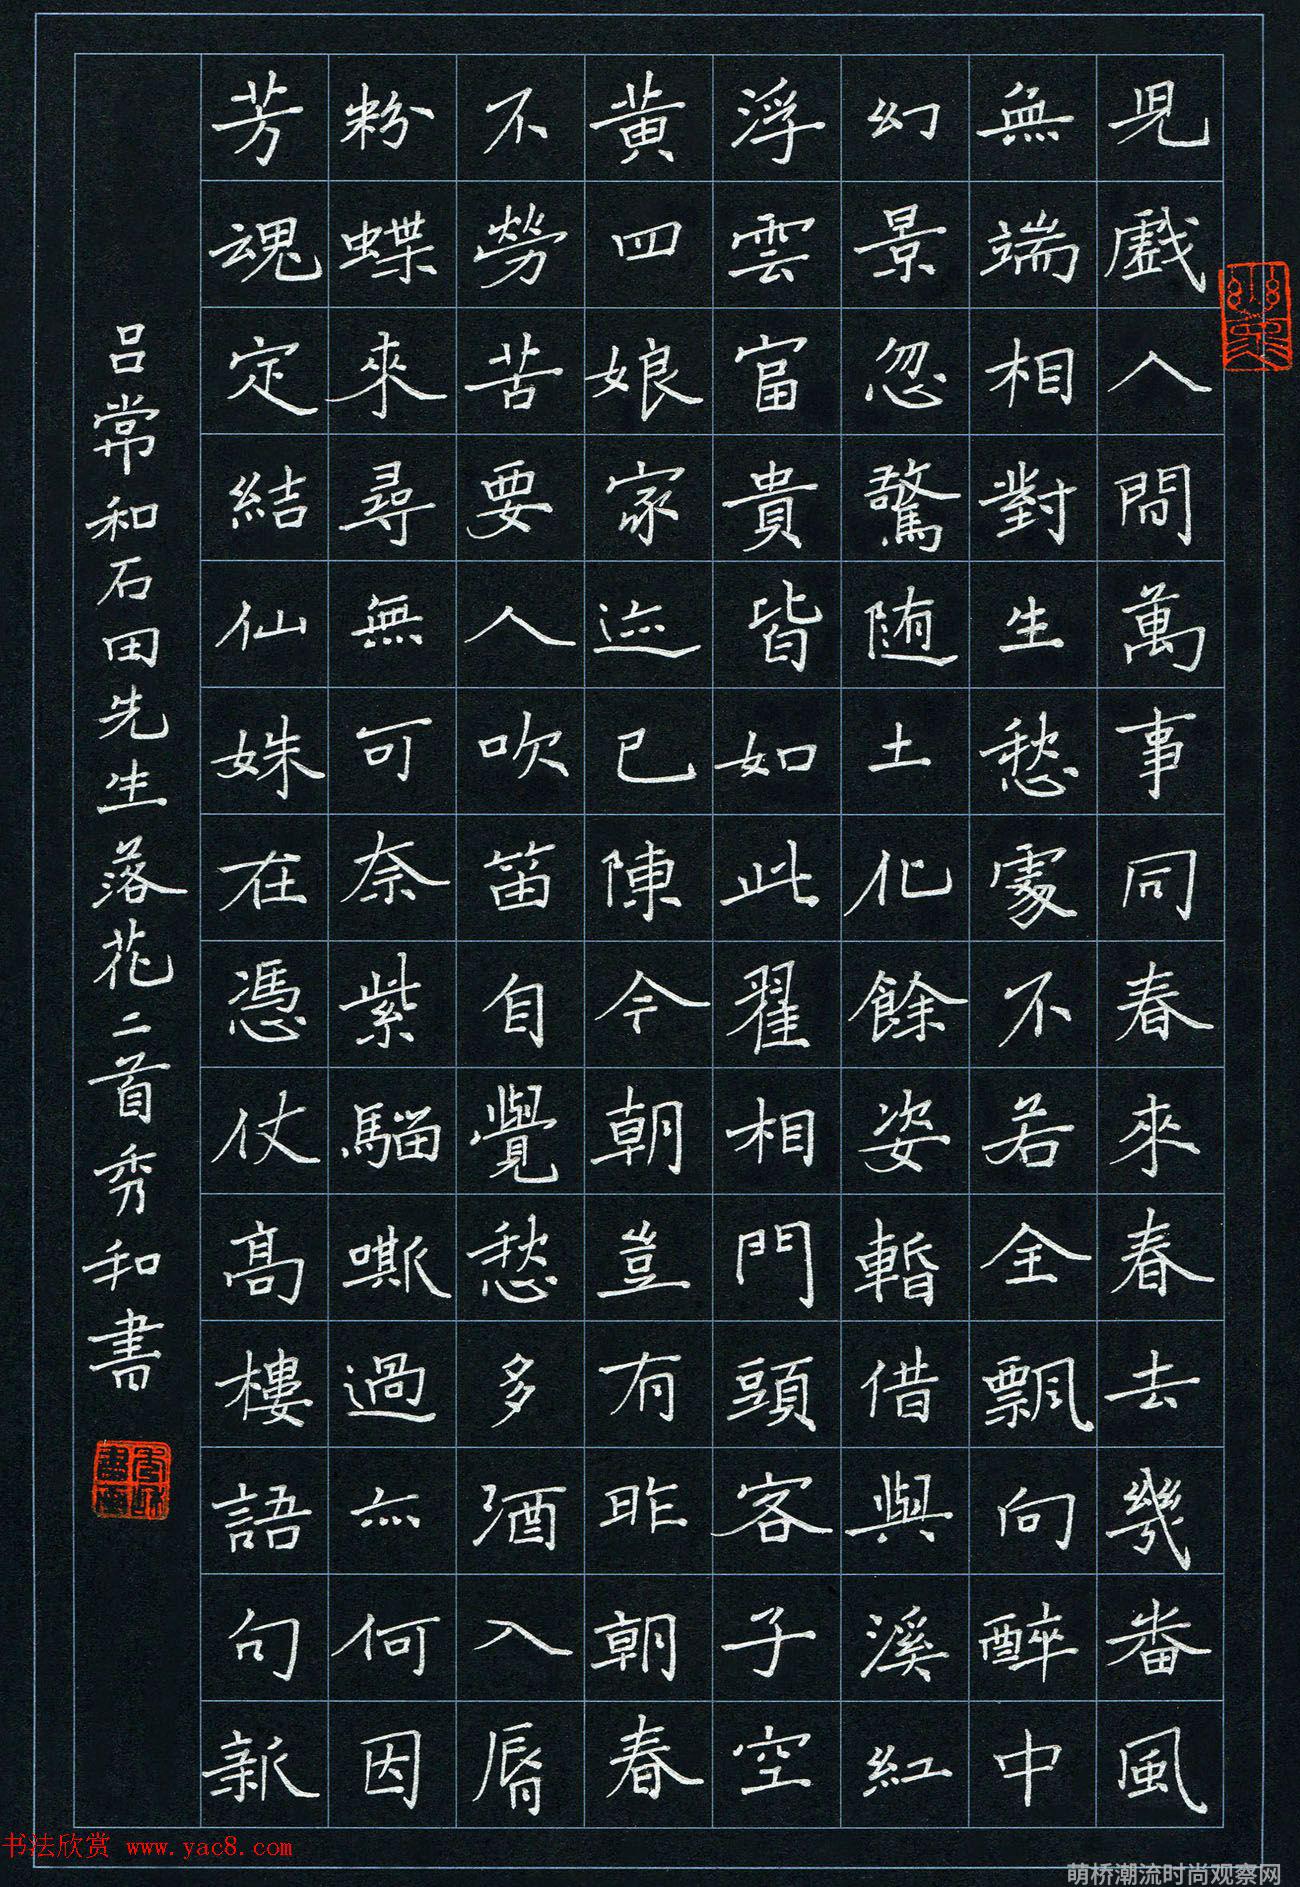 兒戲人間萬事同春來春去幾番風
無端相對生愁處不若全飄向醉中
幻景忽驚随土化餘姿暫借與溪紅
浮雲富貴皆如此翟相門頭客子空
黄四娘家迹已陳今朝豈有昨朝春
不勞苦要人吹笛自覺愁多酒入脣
粉蝶來尋無可奈紫騮嘶過亦何因
芳魂定結仙姝在憑仗髙樓語句新
吕常和石田先生落花二首秀和書
书法欣赏 www.yac8.com
萌桥潮流时尚观察网